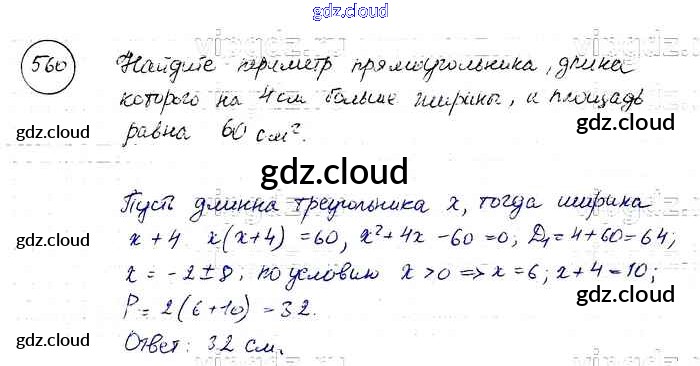 gdz.cloud
560
Найдите периметр прямоугольника, длина
которого на 4 см больше ширины, а площадь
gdz.cloud
gdz.cloud
равна 60 см².
gdz.cloud
Пусть длинна треугольника x, тогда ширина
gdz.cloud
x + 4 x(x+4) = 60, x² + 4x - 60 = 0; D₁ = 4 + 60 = 64;
x = -2 ± 8; по условию x > 0 ⇒ x = 6; x + 4 = 10;
gdz.cloud
P = 2(6+10) = 32.
Ответ: 32 см.
gdz.cloud
gdz.cloud